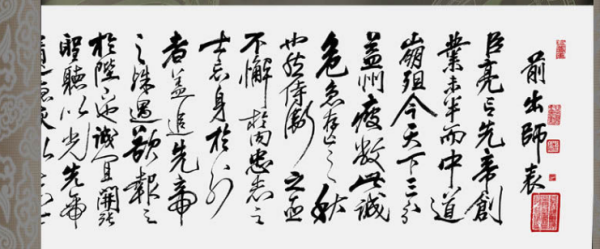 前出師表
臣亮言先帝創
業未半而中道
崩殂今天下三分
益州疲敝此誠
危急存亡之秋
也然侍衛之臣
不懈於內忠志之
士忘身於外
者蓋追先帝
之殊遇欲報之
於陛下也誠宜開張
聖聽以光先帝